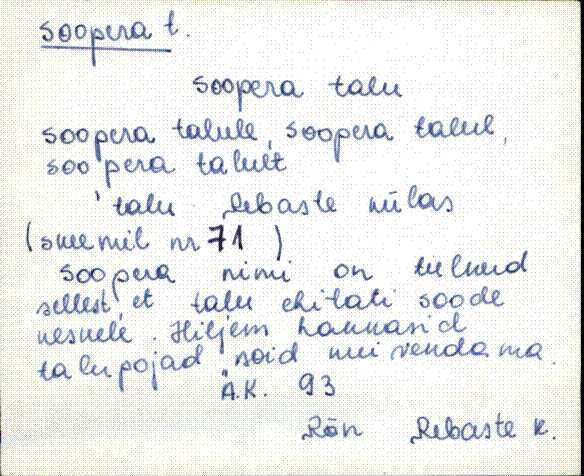 soopera t.
soopera talu
soopera talule, soopera talul,
soopera talult
talu Rebaste külas
(skeemil nr 71)
soopera nimi on tulnud
sellest, et talu ehitati soode
keskele. Hiljem hakkasid
talupojad soid kuivendama.
Ä.K. 93
Rõn Rebaste k.